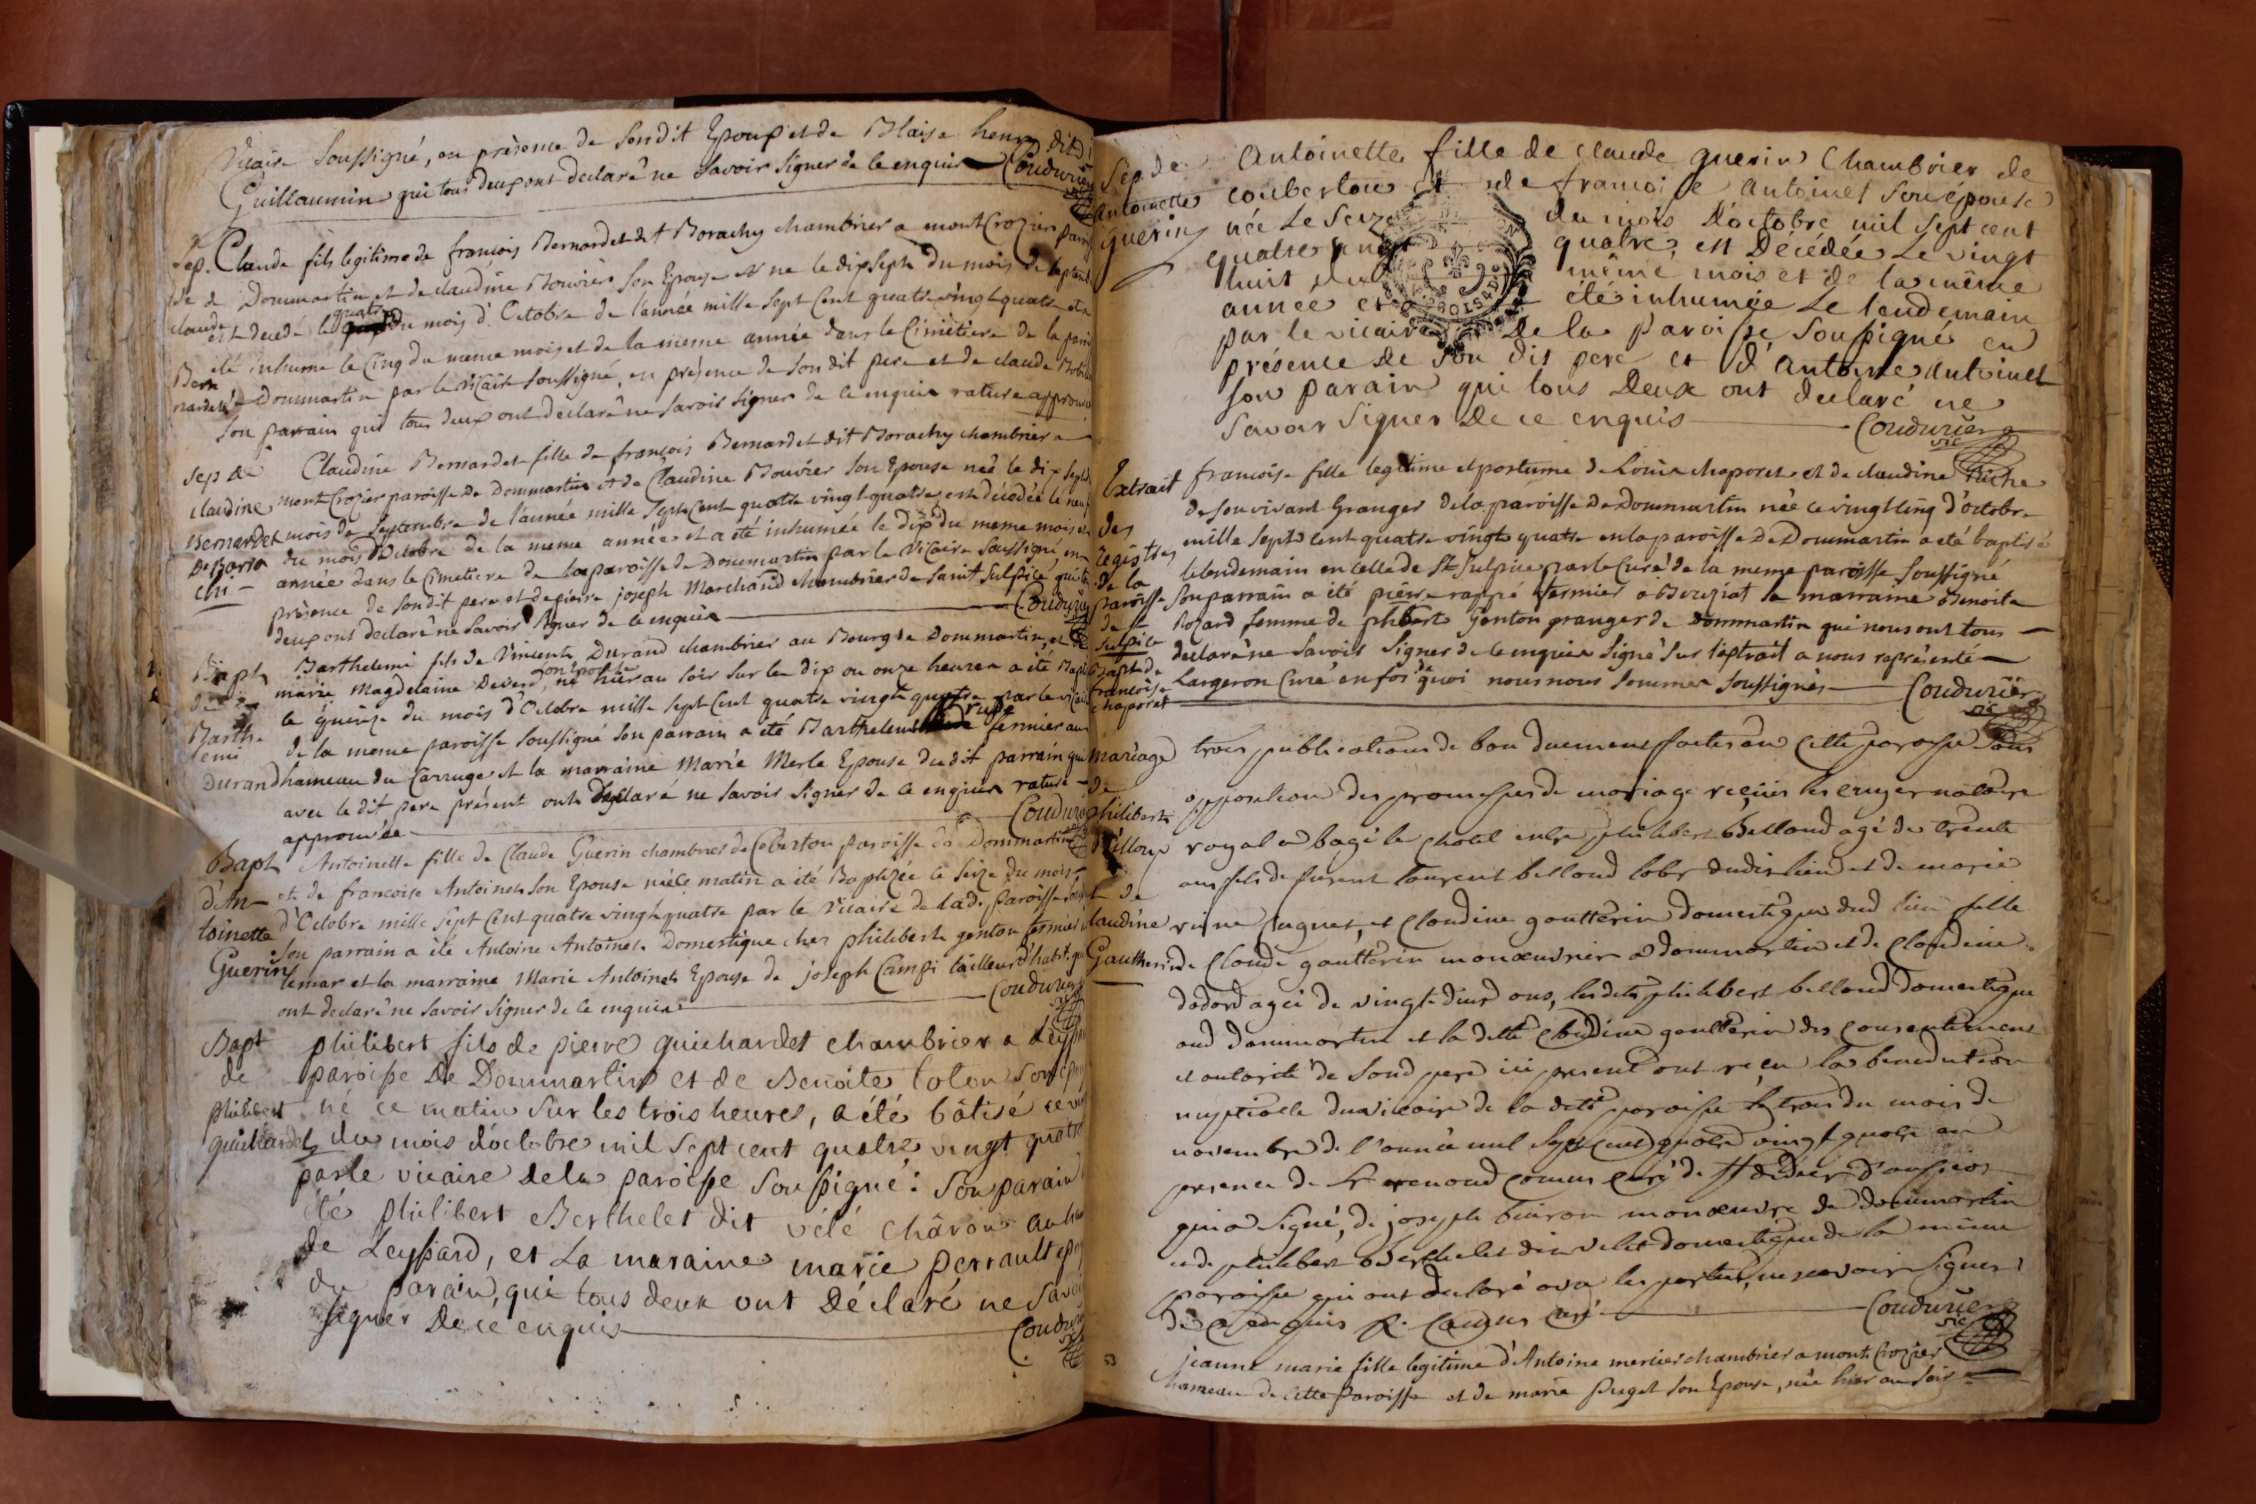 Vicaire soussigné, en présence de sondit Epoux et de Blaise henry dit
Guillaumin qui tous deux ont declaré ne savoir signer de ce enquis Couduriér
vic
Sep. Claude fils legitime de francois Bernardet dit Borachy chambrier a mont Crozier paroi
de d Dommartin et de claudine Bouvier son Epouse né le dix sept du mois de septemb
claude est decedé le quatre du mois d'Octobre de l'année mille sept Cent quatre vingt quatre et a
été inhumé le Cinq du meme mois et de la meme année dans le Cimetiere de la paroi
Bern
nardet Dommartin par le vicaire soussigné, en présence de son dit pere et de claude
son parrain qui tous deux ont declaré ne savoir signer de ce enquis rature approuvé
Sep de Claudine Bernardet fille de françois Bernardet dit Borachy chambrier a
claudine mont Crozier paroisse de Dommartin et de Claudine Bouvier son Epouse neé le dix sept du
Bernardet mois de Septembre de l'année mille sept Cent quatre vingt quatre, est décédée le neuf
De Bora du mois d'Octobre de la meme année et a été inhumée le dix du meme mois et
chi année dans le Cimetiere de la paroisse de Dommartin par le Vicaire soussigné, en
présence de son dit pere et de pierre joseph Marchand chambrier de saint sulpice qui to
deux ont declaré ne savoir signer de ce enquis Couduriér
Bapt Barthelemi fils de Vincent Durand chambrier au Bourg de Dommartin, et de
de marie Magdelaine Devend son epouse né hier au soir sur les dix ou onze heures a été Bapti
Barthe le quinze du mois d'Octobre mille sept Cent quatre vingt quatre par le vicaire
lemi de la meme paroisse soussigné son parrain a été Barthelemi fermier au
Durand hameau du Carruge et la marraine Marie Merle Epouse du dit parrain qui
avec le dit pere présent ont declaré ne savoir signer de ce enquis rature
approuvée Couduriér
Bapt Antoinette fille de Claude Guerin chambrier de Coberton paroisse de Dommartin
d'An et de francoise Antoinet son Epouse née ce matin a été Baptizée le seize du mois
toinette d'Octobre mille sept Cent quatre vingt quatre par le Vicaire de lad. paroisse
Guerin son parrain a été Antoine Antoinet Domestique chez philibert genton fermier
lemar et la marraine Marie Antoinet Epouse de joseph Campi tailleur d'habits qui
ont declaré ne savoir signer de ce enquis Couduriér
Bapt philibert fils de pierre guichardet chambrier a Leyss
de paroisse De Dommartin et de Benoite toton son épou
philibert né ce matin sur les trois heures, a été bâtisé ce vin
guichardet du mois d'octobre mil sept cent quatre vingt quatre
par le vicaire de la paroisse soussigné: son parain
été philibert Berthelet dit vélé chârôn au ham
de Leyssard, et La maraine marie perrault epou
du parain, qui tous deux ont Déclaré ne Savoi
signer De ce enquis Couduriér
Sep de Antoinette fille de claude guerin Chambrier de
Antoinette couberton et de francoise antoinet son épouse
guerin née Le Seize du mois d'octobre mil sept cent
quatre vingt quatre, est Décédée Le vingt
huit du même mois et de la même
année et a été inhumée Le lendemain
par le vicaire De la paroisse soussigné en
présence de son dit pere et d'antoine antoinet
son parain qui tous Deux ont declaré ne
Savoir signer De ce enquis Couduriér
vic
Extrait francoise fille legitime et postume de Louis chaporet et de claudine
des de son vivant Granger de la paroisse de Dommartin née le vingt Cinq d'octobre
registres mille sept Cent quatre vingt quatre en la paroisse de Dommartin a été baptisé
de la le lendemain en celle de St Sulpice par le Curé de la meme paroisse soussigné
paroisse son parrain a été pierre rappé fermier a Béreziat la marraine Benoite
de St Rozard femme de philibert Gonton granger de Dommartin qui nous ont tous
sulpice declaré ne savoir signer de ce enquis signé sur l'extrait a nous représenté
Bapt de Largeron Curé en foi de quoi nous nous sommes soussignés Couduriér
francoise vic
chaporet
mariage trois publications de ban duement faites en cette paroisse sans
de opposition des promesses de mariage reçues les cruyer notaire
philibert royal a bagé le chatel entre philibert Belloud agé de trente
Bélloux ans fils de furent laurent belloud labr dudit lieu et de marie
et de
claudine reine puguet, et claudine goutterin domestique dud lieu fille
Gautherin de Claude goutterin manoeuvrier a dommartin et de Claudine
dodard agée de vingt deux ans, lesdits philibert belloud domestique
aud dommartin et la dette claudine goutterin des consentement
et autorité de sond pere ici present ont reçu la benediction
nuptialle du vicaire de la dete paroisse le trois du mois de
novembre de l'année mil sept cent quatre vingt quatre en
presence de Sr renoud camus curé de St didier d'aussiat
qui a signé, de joseph buiron manoeuvre de dommartin
et de philibert Berthelet dit velet domestique de la même
paroisse qui ont declaré avec les parties, ne scavoir signer
de ce enquis R. Camus curé Couduriér
vic
53
jeanne marie fille legitime d'Antoine mercier chambrier a mont Crozier
hameau de Cette paroisse et de marie puget son Epouse, née hier au soir